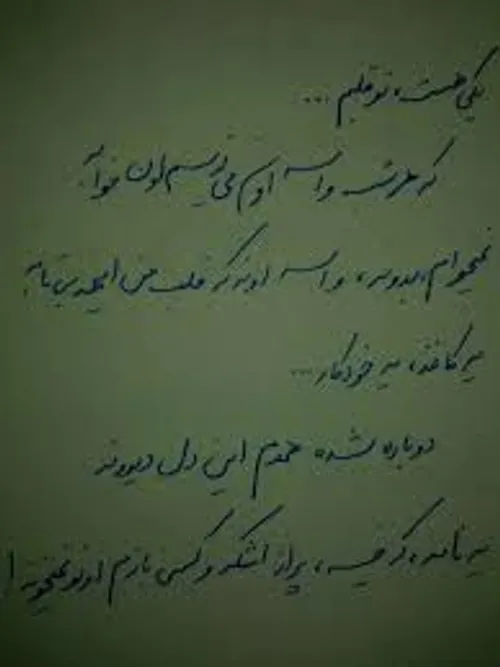 یکی هست، تو قلبم ...
که هر شب واسه اون می نویسم اون خوابه
نمیخوام، بدونه، واسه اونه که قلب من اینهمه بی تابه
یه کاغذ، یه خودکار ...
دوباره شده همدم این دل دیوونه
یه نامه، که خیسه، پر از اشکه و کسی بازم اونو نمیخونه!